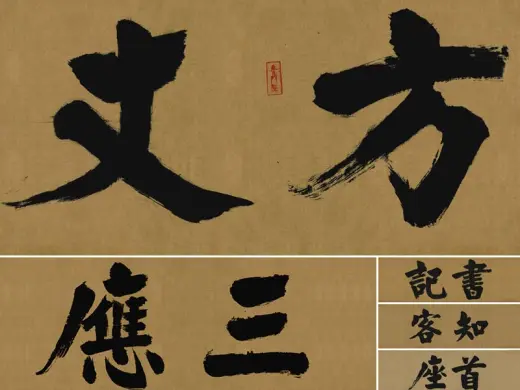 方丈
三應
書記
知客
首座